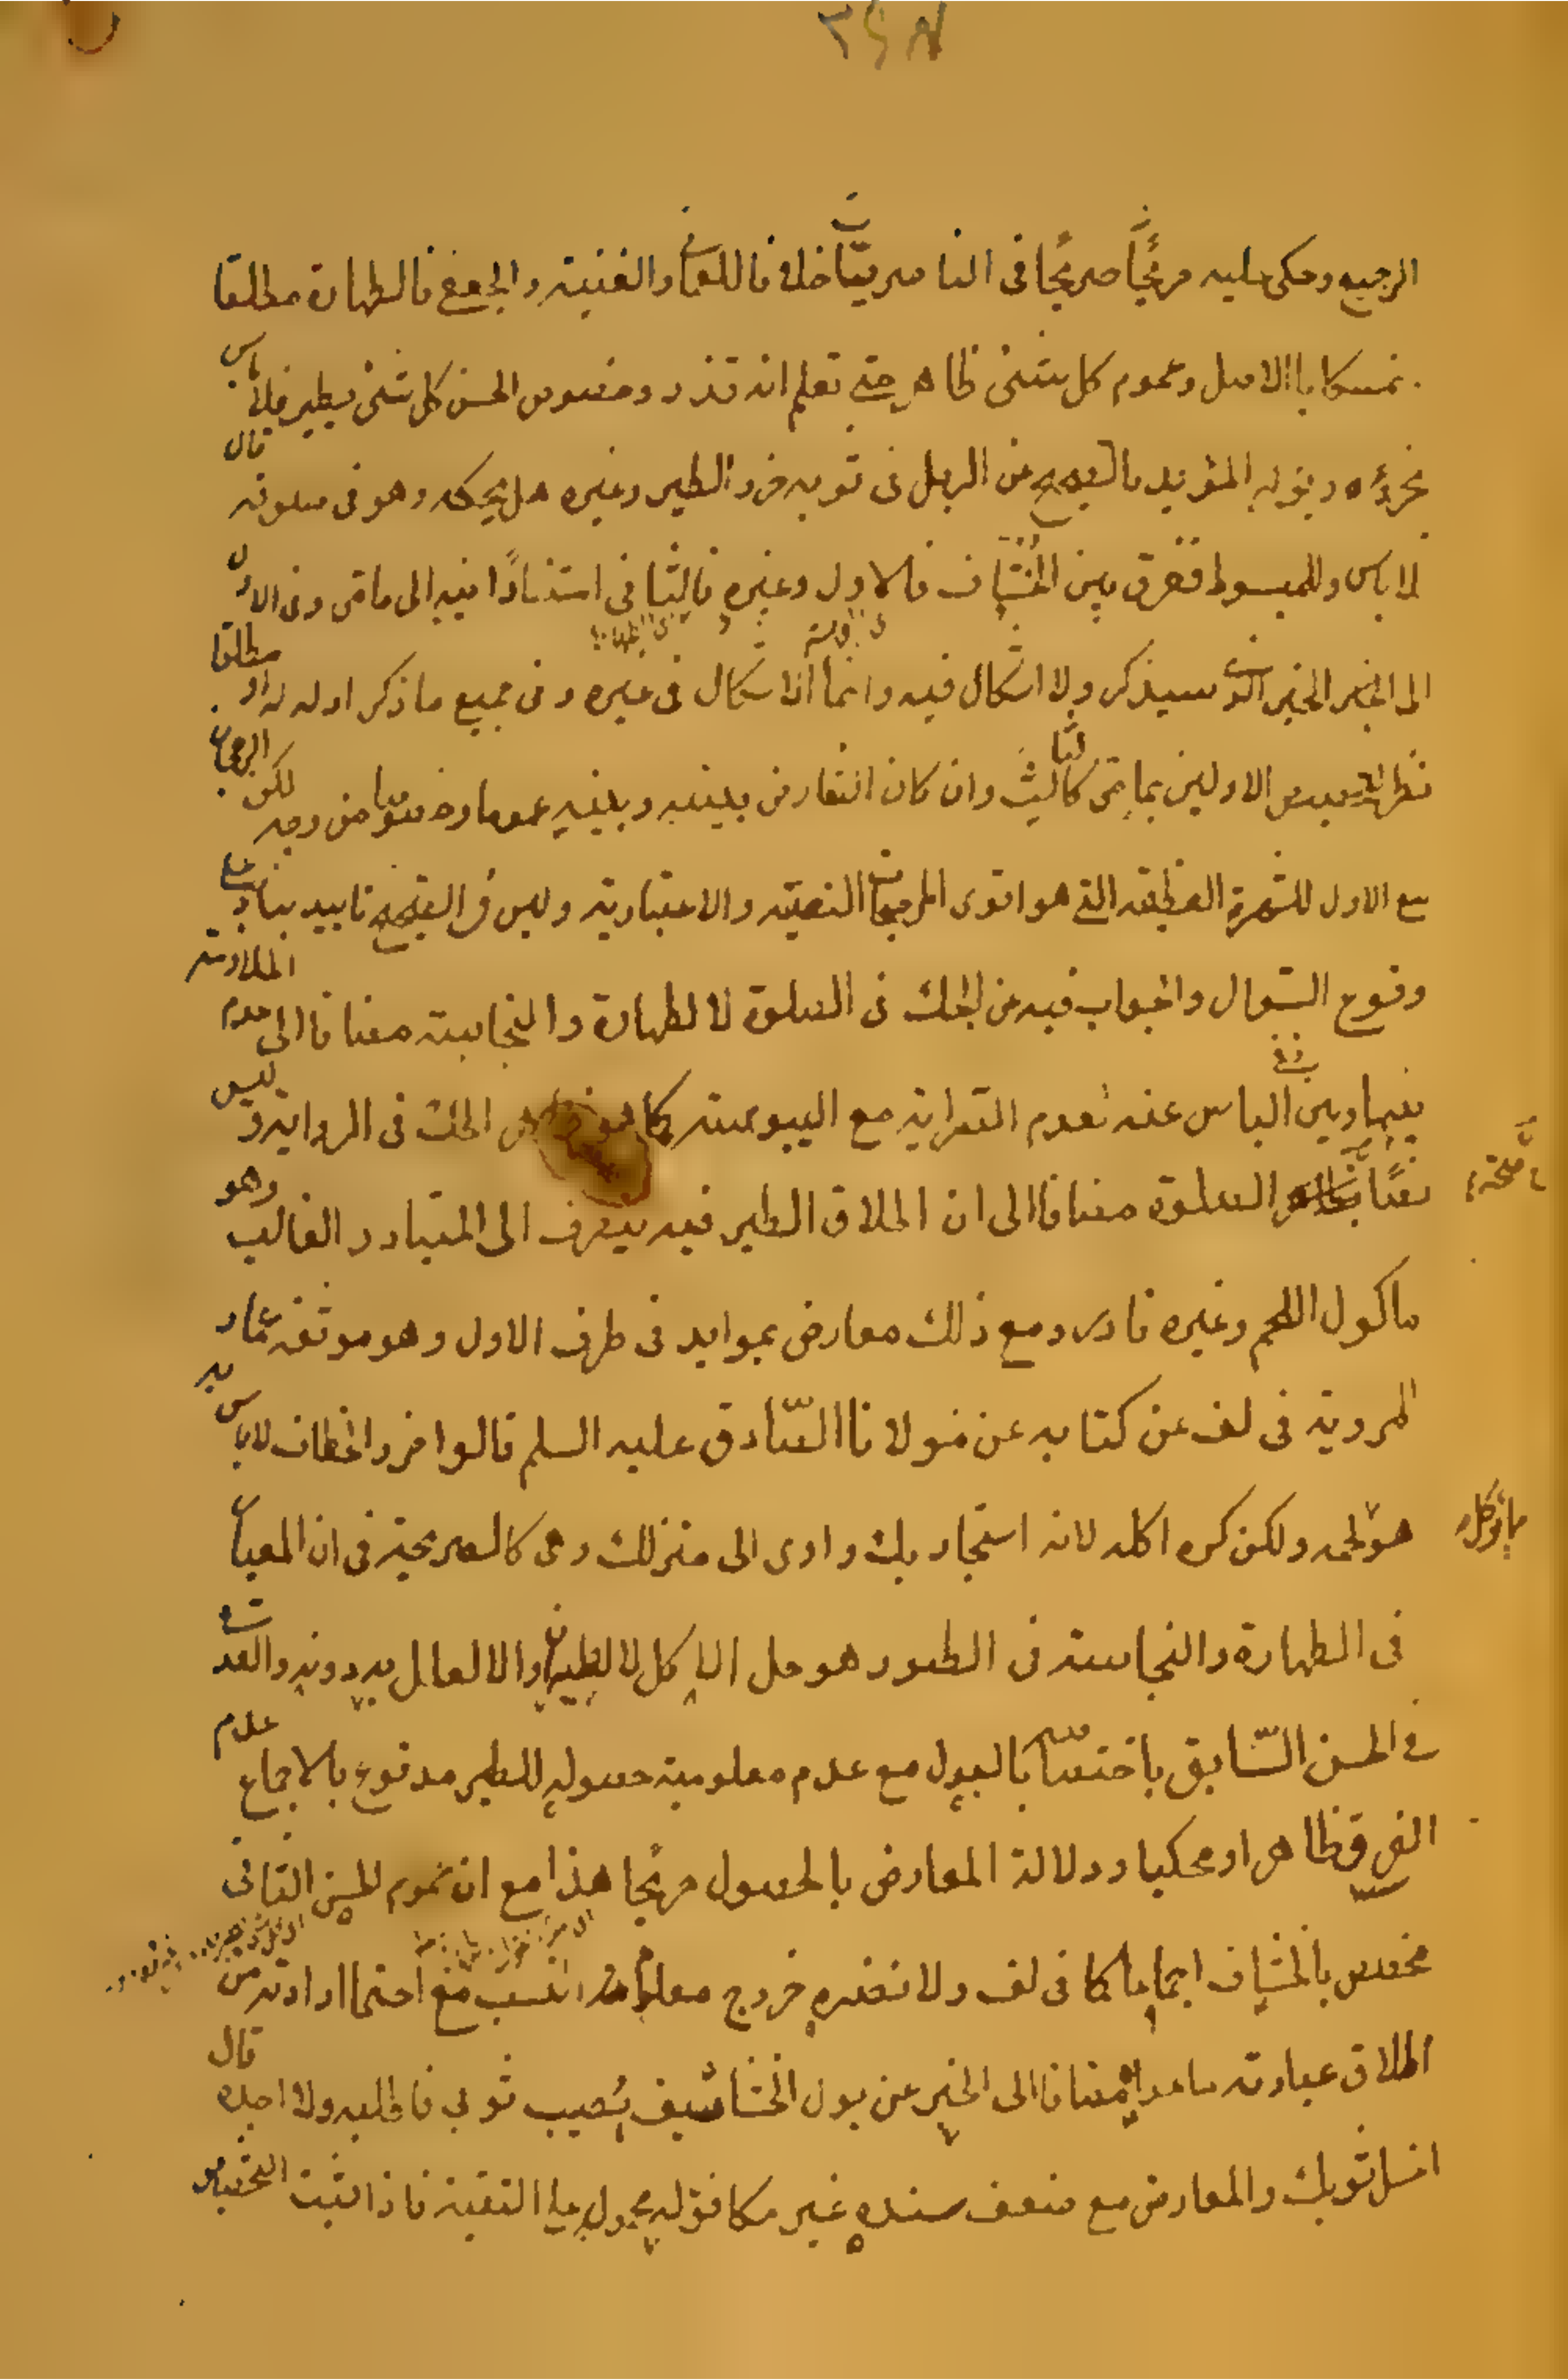 الرجيع وحكى عليه صريحًا في الناصريات خلافا للعماني والفقيه والجعفي فالطهارة مطلقا
تمسكا بالاصل وعموم كل شئ طاهر حتى تعلم انه قذر وخصوص الحسن كل شئ يطير فلا باس
بخرؤه وبوله المؤيد بالصحيح عن الرجل في ثوبه خرء الطير وغيره هل يحكه وهو في صلوته قال
لا باس وللمبسوط ففرق بين الخشاف فالاول وغيره فالثاني استنادًا فيه الى ما مر وفي الاول
الى الخبر الذي سيذكر ولا اشكال فيه وانما الاشكال في غيره وفي جميع ما ذكر ادلة له او مطلقا
نظر لتخصيص الاولين بما مر كالثالث وان كان التعارض بينه وبينه عموما وخصوصا من وجه لكن الرجحان
مع الاول للشهرة العظيمة التي هو اقوى المرجحات النصية والاعتبارية وليس في الصحيح تاييد بناء على
وقوع السؤال والجواب فيه عن الحك في الصلوة لا الطهارة والنجاسة مضافا الى عدم الملازمة
بينهما وبين الباس عنه لعدم السراية مع اليبوسة كما هو الحك في الرواية وليس
نصًا الصلوة مضافا الى ان اطلاق الطير فيه ينصرف الى المتبادر الغالب وهو
ماكول اللحم وغيره نادر ومع ذلك معارض بموايد في طرف الاول وهو موثقة عمار
المروية في لف عن كتابه عن مولانا الصّادق عليه السلم قالوا خرء الخطاف لا باس به
هو يؤكل لحمه ولكن كره اكله لانه استجار بك واوى الى منزلك وهي كالصريحة في ان المعيار
في الطهارة والنجاسة في الطيور هو حل الاكل لا الطيران والا لعلل به دونه والقدح
في الحسن السّابق باختصاصه بالبول مع عدم معلومية حصوله للطير مدفوع بالاجماع عدم
الفرق ظاهرا ومحكيا ودلالة المعارض بالحصول صريحا هذا مع ان عموم الحسن الثاني
مخصص بالخشاف اجماعا كما في لف ولا نضره خروج معلوم النسب مع احتمال ارادته من
اطلاق عبارته ما عداه مضافا الى الخبر عن بول الخشاشيف يُصيب ثوبي فاطلبه ولا اجده قال
اغسل ثوبك والمعارض مع ضعف سنده غير مكافؤ له محمول على التقية فاذا ثبت التخصيص